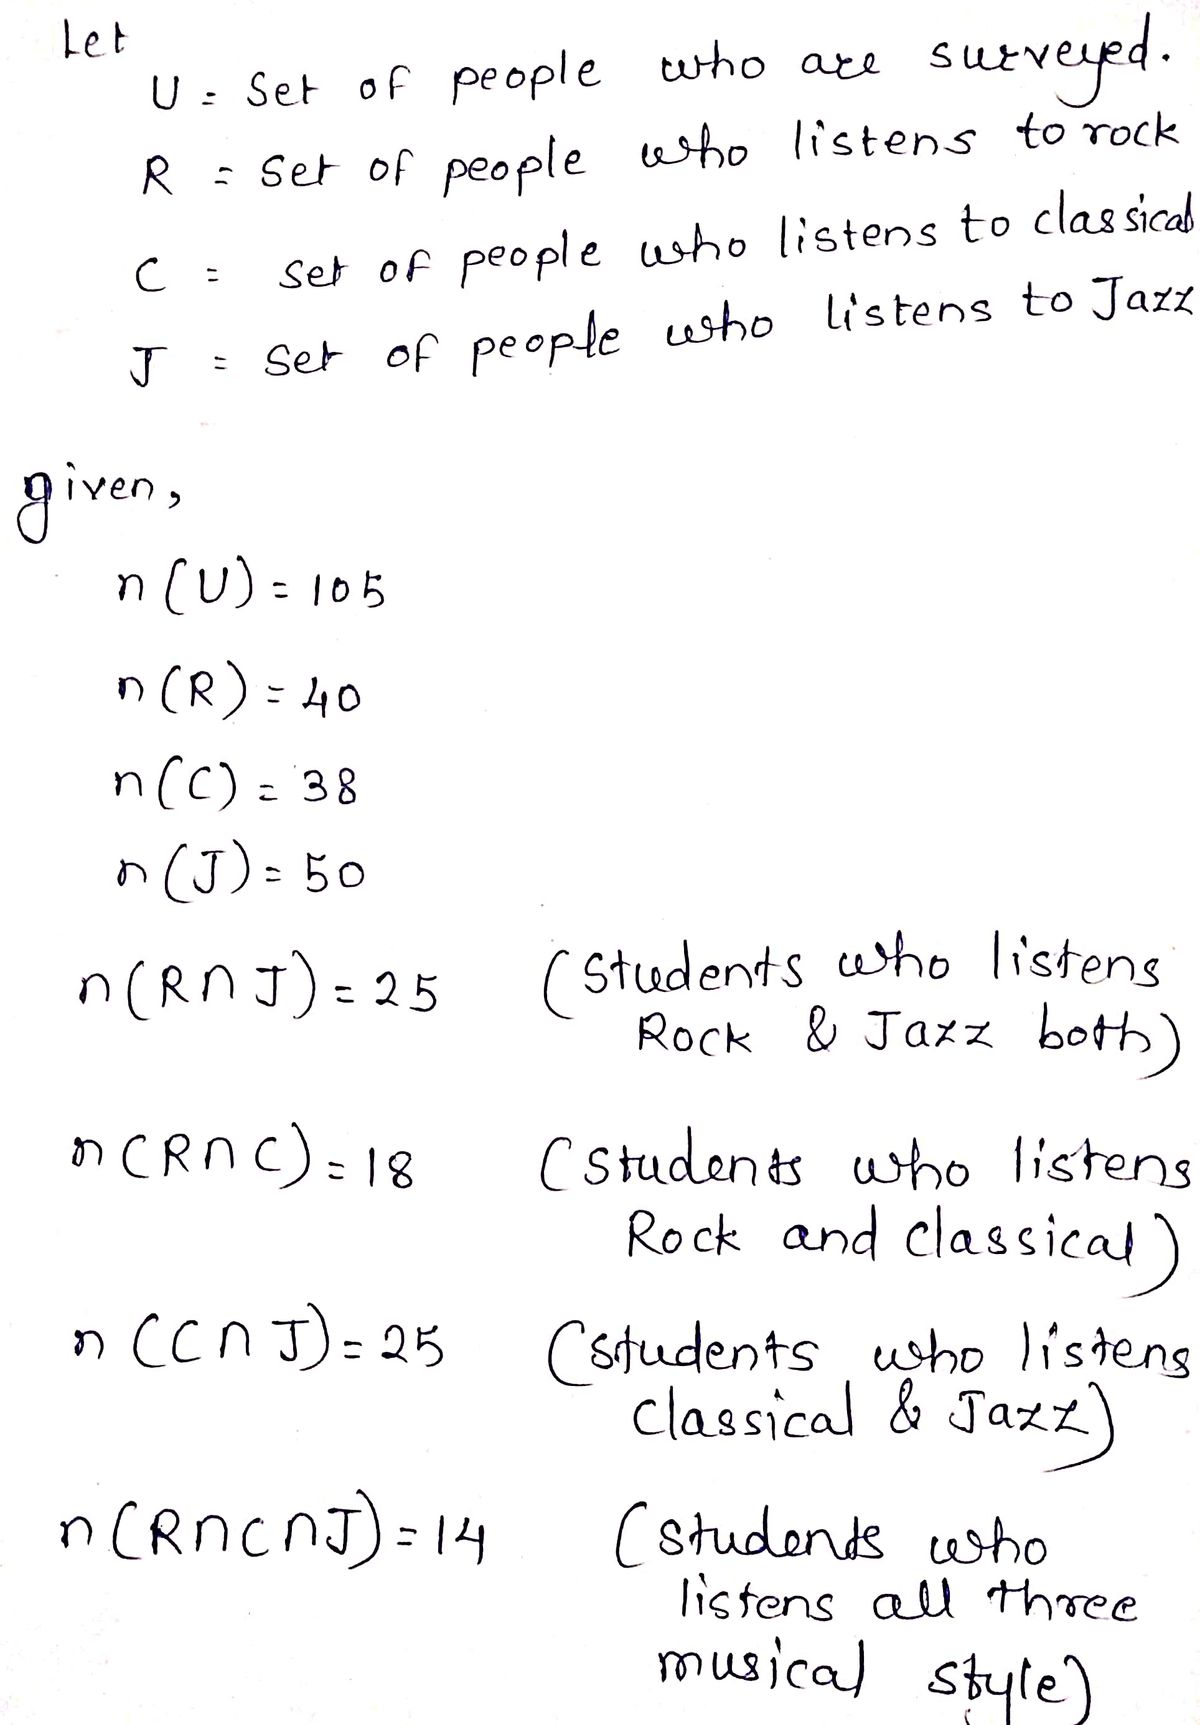 Let
U = Set of people who are surveyed.
R = Set of people who listens to rock
C = set of people who listens to classical
J = Set of people who listens to Jazz
given,
n(U) = 105
n(R) = 40
n(C) = 38
n(J) = 50
n(R∩J) = 25 (Students who listens
Rock & Jazz both)
n(R∩C) = 18 (Students who listens
Rock and classical)
n(C∩J) = 25 (students who listens
classical & Jazz)
n(R∩C∩J) = 14 (students who
listens all three
musical style)